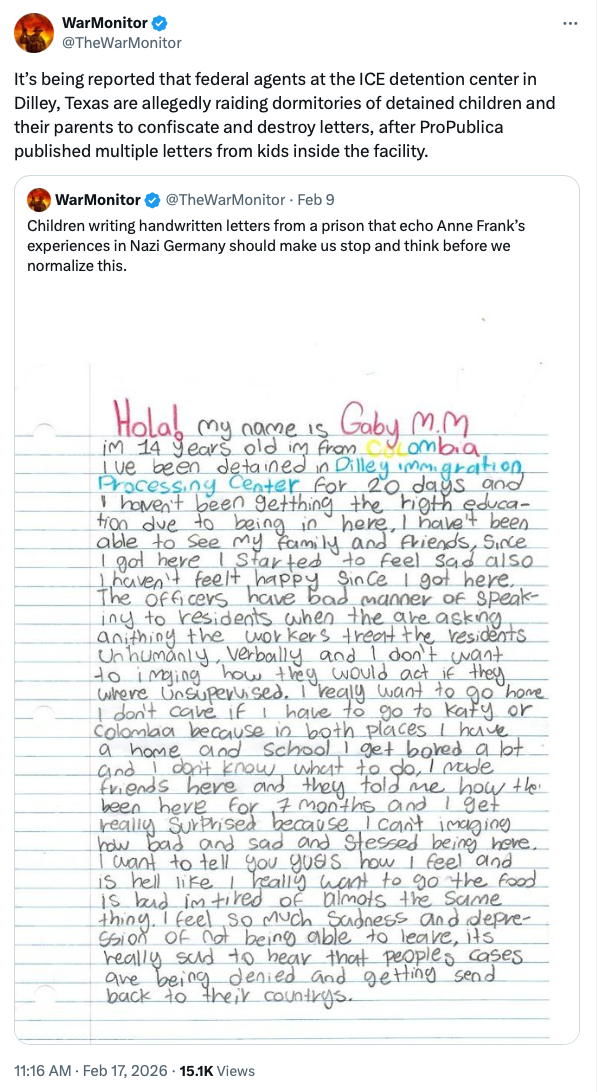 WarMonitor
@TheWarMonitor
It’s being reported that federal agents at the ICE detention center in
Dilley, Texas are allegedly raiding dormitories of detained children and
their parents to confiscate and destroy letters, after ProPublica
published multiple letters from kids inside the facility.
WarMonitor @TheWarMonitor · Feb 9
Children writing handwritten letters from a prison that echo Anne Frank’s
experiences in Nazi Germany should make us stop and think before we
normalize this.
Hola! my name is Gaby M.M
im 14 years old im from Colombia
i've been detained in Dilley immigration
Processing Center for 20 days and
I haven't been getthing the rigth educa-
tion due to being in here, I have't been
able to see my family and friends, Since
I got here I started to feel sad also
I haven't feelt happy Since I got here.
The officers have bad manner of speak-
iny to residents when the are asking
anithing the workers treat the residents
Unhumanly, verbally and I don't want
to imging how they would act if they
where Unsupervised. I realy want to go home
I don't care if I have to go to Katy or
Colombia because in both places I have
a home and school I get bored a lot
and I don't know what to do, I made
friends here and they told me how the
been here for 7 months and I get
really surprised because I can't imaging
how bad and sad and stessed being here.
I want to tell you guys how I feel and
is hell like I really want to go the food
is bad im tired of almots the same
thing. I feel so much Sadness and depre-
ssion of not being able to leave, its
really sad to hear that peoples cases
are being denied and getting send
back to their countrys.
11:16 AM · Feb 17, 2026 · 15.1K Views